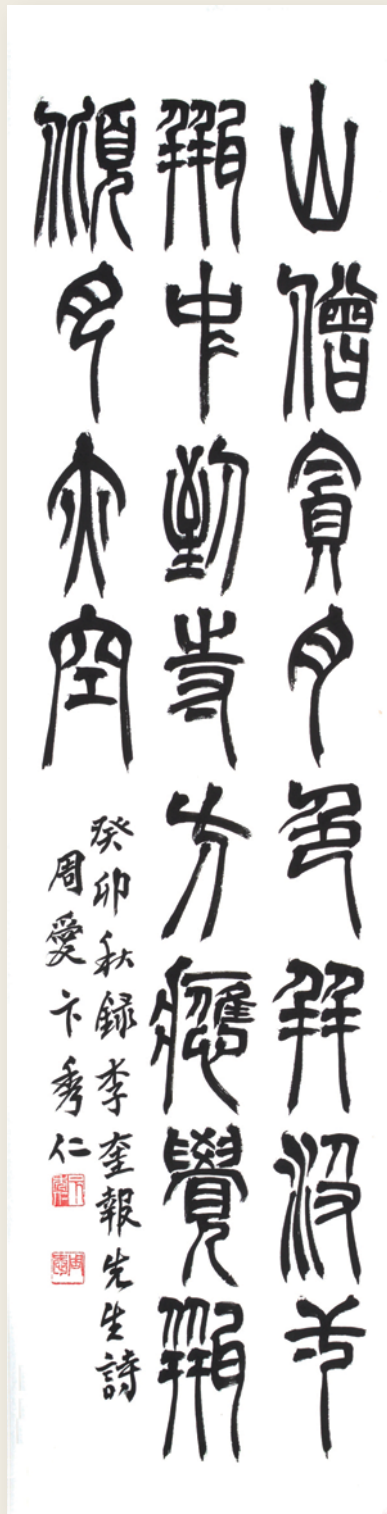 山僧貪月色幷汲一
甁中到寺方應覺甁
傾月亦空
癸卯秋録李奎報先生詩
周愛卞秀仁